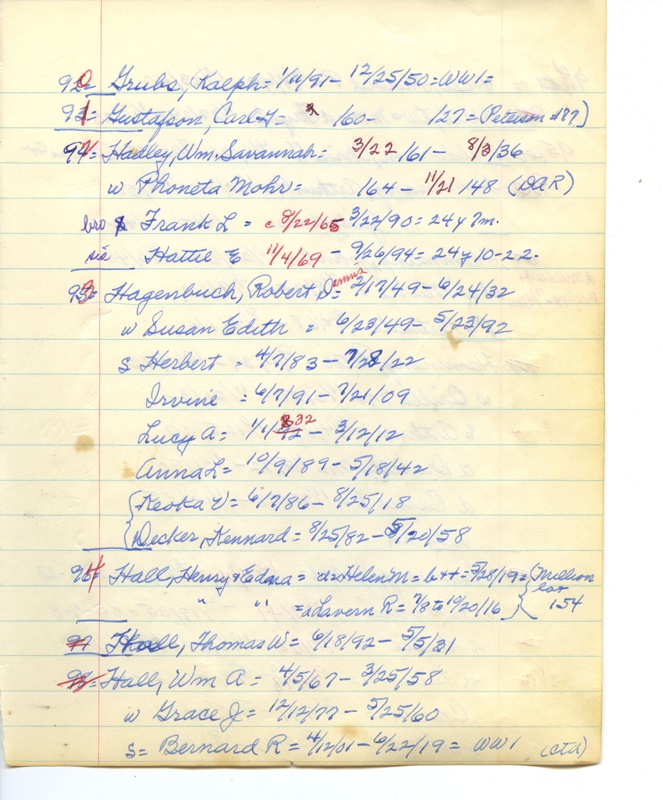 920= Grubs, Ralph= 1/11/91- 12/25/50=WW1=
931= Gustafson, Carl F= 160- 127= (Peterson #87)
942= Hadley, Wm. Savannah= 3/22/61- 8/3/36
w Phoneta Mohr= 164- 11/21 148 (DAR)
bro Frank L = c 8/22/65 3/22/90= 24y 7m.
sis Hattie E 11/4/69 - 9/26/94= 24y 10-22-
953= Hagenbuch, Robert J= 2/17/49- 6/24/32
w Susan Edith = 6/23/49- 5/23/92
s Herbert = 4/7/83- 7/28/22
Irvine = 6/7/91- 7/21/09
Lucy A= 1/1/ 32 - 3/12/12
Anna L= 10/9/89- 5/18/42
{Keoka V= 6/7/86- 8/25/18
{Decker, Kennard= 8/25/82- 5/20/58
964= Hall, Henry & Edna= d=Helen M= b++= 5/28/19= (Million
" " =d Lavern R= 7/8 to 10/20/16 } lot 154
97 Hall, Thomas W= 6/18/92- 5/5/21
98= Hall, Wm A= 4/5/67- 3/25/58
w Grace J= 12/12/77- 5/25/60
s= Bernard R= 4/12/01- 6/22/19= WW1 (ctd)